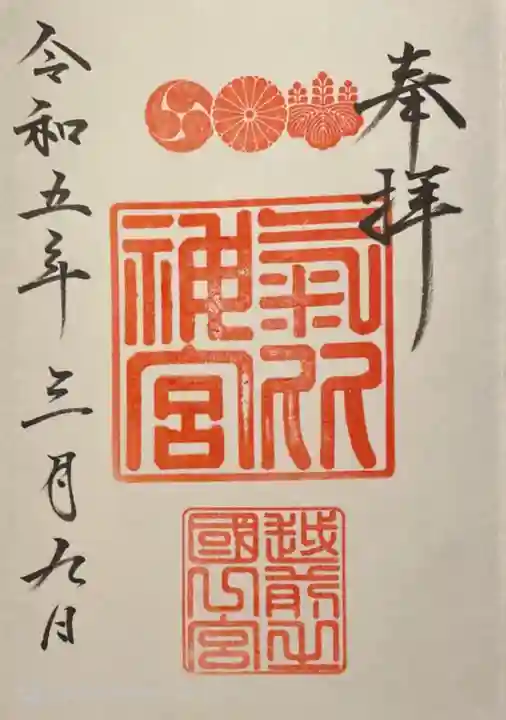 奉拝
氣比
神宮
越前之
國一宮
令和五年三月九日